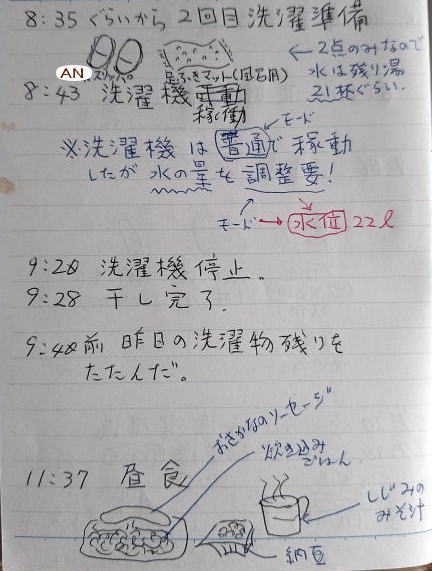 8:35 ぐらいから 2回目洗濯準備
AN
スリッパ
足ふきマット(風呂用)
←2点のみなので
水は残り湯
21杯ぐらい.
8:43 洗濯機
稼働
モード
※洗濯機は普通で稼動
したが水の量を調整要!
モード→水位 22ℓ
9:20 洗濯機停止.
9:28 干し完了.
9:40前 昨日の洗濯物残りを
たたんだ。
おさかなのソーセージ
炊き込み
ごはん
11:37 昼食
しじみの
みそ汁
納豆